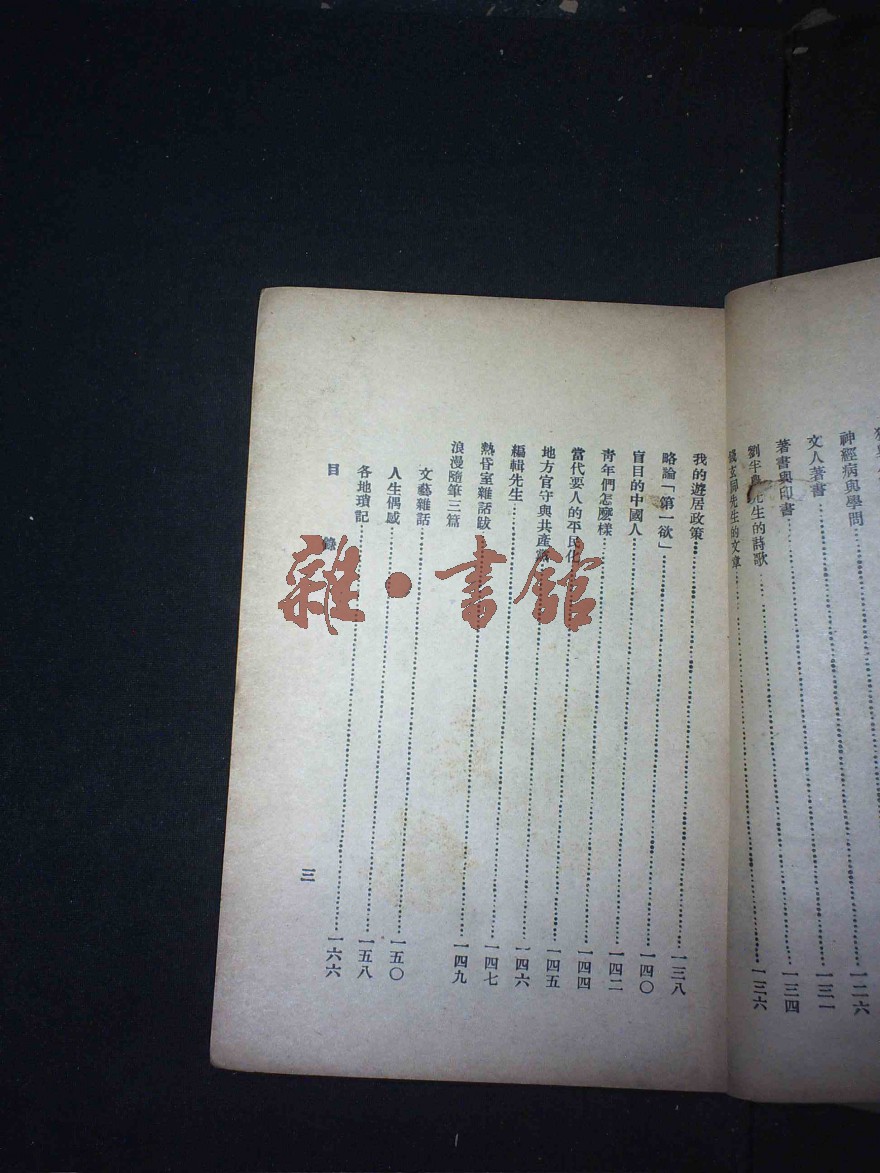 神經病與學問
文人著書……一二六
著書與印書……一三一
劉半農先生的詩歌……一三四
錢玄同先生的文章……一三六
我的遊居政策……一三八
略論「第一欲」……一四〇
盲目的中國人……一四二
青年們怎麼樣……一四四
當代要人的平民化……一四五
地方官守與共產黨……一四六
編輯先生……一四七
熱昏室雜話跋……一四九
浪漫隨筆三篇
文藝雜話……一五〇
人生偶感……一五八
各地瑣記……一六六
目錄
三
雜·書館